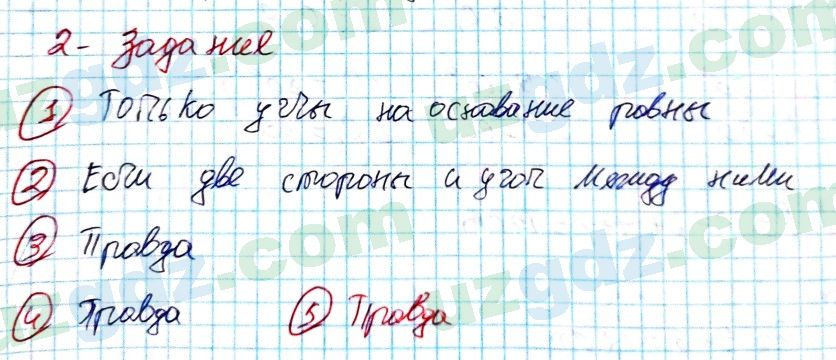 2- Задание
1 Только углы на основание ровны
2 Если две стороны и угол между ними
3 Правда
4 Правда 5 Правда
uzgdz.com